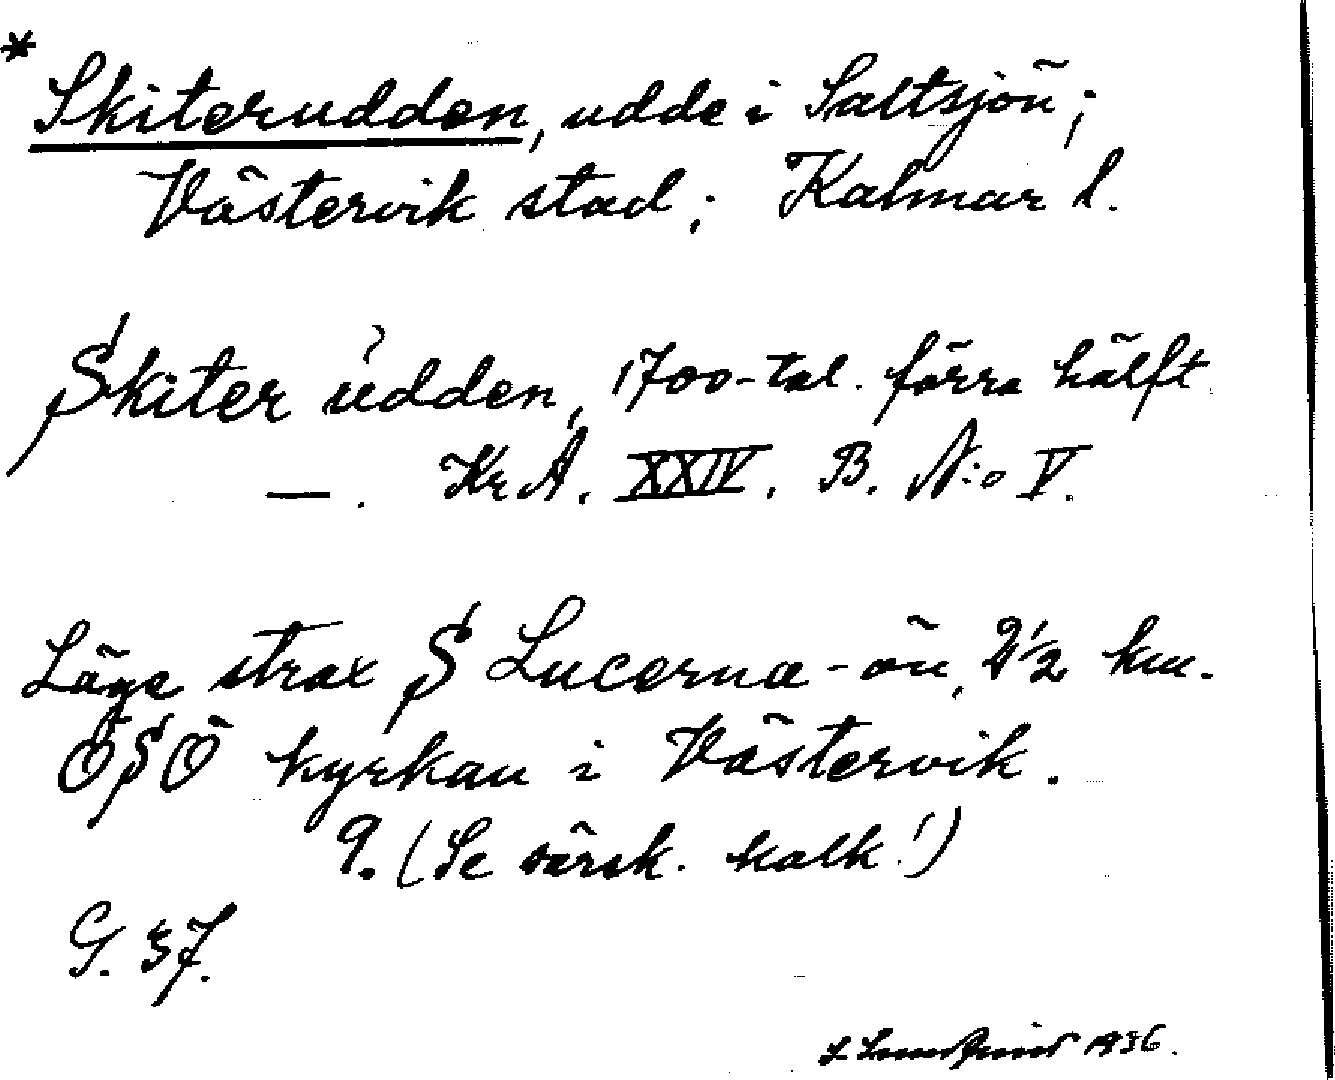 * Skiterudden, udde i Saltsjön;
Västervik stad; Kalmar l.
Skiter udden, 1700-tal. förra hälft
—. KrA. XXIV. B. N:o V.
Läge strax S Lucerna-ön, 2 1/2 km.
OSO kyrkan i Västervik.
9. (Se särsk. kalk!)
G. 37.
1936.